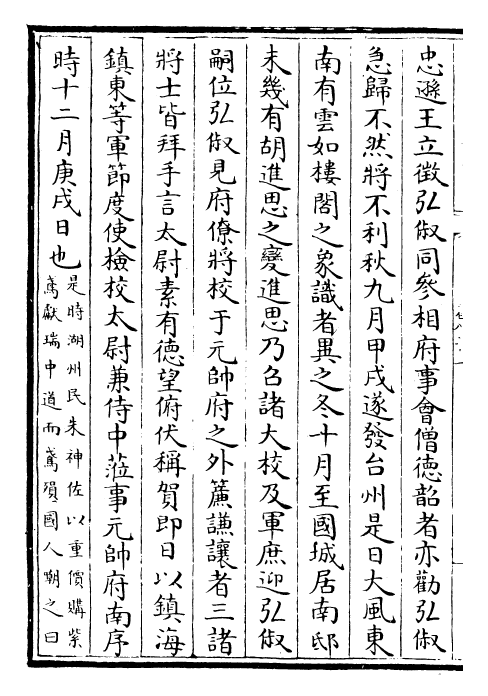 忠遜王立徵弘俶同參相府事會僧德韶者亦勸弘俶
急歸不然將不利秋九月甲戌遂發台州是日大風東
南有雲如樓閣之象識者異之冬十月至國城居南邸
未幾有胡進思之變進思乃召諸大校及軍庶迎弘俶
嗣位弘俶見府僚將校于元帥府之外簾謙讓者三諸
將士皆拜手言太尉素有德望俯伏稱賀即日以鎮海
鎮東等軍節度使檢校太尉兼侍中蒞事元帥府南序
時十二月庚戌日也是時湖州民朱神佐以重價購紫
鳶獻瑞中道而鳶殞國人嘲之曰